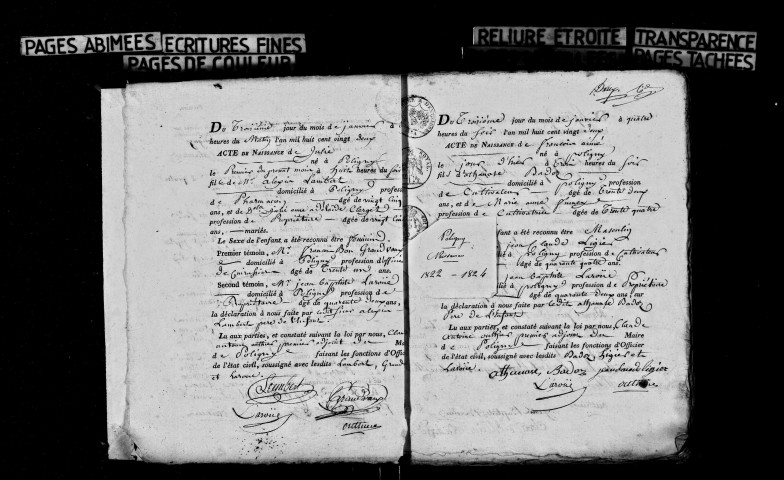 PAGES ABIMEES
ECRITURES FINES
PAGES DE COULEUR
RELIURE ETROITE
TRANSPARENCE
PAGES TACHEES
Du Troisième jour du mois de janvier à
heures du Matin l'an mil huit cent vingt deux
ACTE DE NAISSANCE de Julie
né à Poligny
le Premier du présent mois à huit heures du soir
fille de Mr alexis Lambert
domicilié à Poligny profession
de Pharmacien âgé de vingt cinq
ans, et de
profession de Propriétaire âgée de vingt
ans, mariés.
Le Sexe de l'enfant a été reconnu être féminin
Premier témoin, Mr
domicilié à Poligny profession d'officier
de âgé de Trente un ans.
Second témoin, Mr jean Baptiste Laroüe
domicilié à Poligny profession de
Propriétaire âgé de quarante deux ans,
la déclaration à nous faite par alexis
Lambert père de l'enfant
Lu aux parties, et constaté suivant la loi par nous, Claude
antoine premier adjoint du Maire
de Poligny faisant les fonctions d'Officier
de l'état civil, soussigné avec lesdits Lambert,
et Laroüe.
Lambert
Laroüe
Du Troisième jour du mois de janvier à quatre
heures du soir l'an mil huit cent vingt deux
ACTE DE NAISSANCE de
né à Poligny
le jour d'hier à heures du soir
fils d'athanase Badoz
domicilié à Poligny profession
de Cultivateur âgé de Trente deux
ans, et de Marie anne
profession de Cultivatrice âgée de Trente quatre
Poligny
Naissances
1822 - 1824
fant a été reconnu être Masculin
jean Claude Ligier
lié à Poligny profession de Cultivateur
âgé de quarante quatre ans.
jean Baptiste Laroüe
lié à Poligny profession de Propriétaire
âgé de quarante deux ans
la déclaration à nous faite par ledit athanase Badoz
Père de l'Enfant
Lu aux parties, et constaté suivant la loi par nous Claude
antoine premier adjoint du Maire
de Poligny faisant les fonctions d'Officier
de l'état civil, soussigné avec lesdits Badoz, Ligier et
Laroüe.
athanase Badoz jean claude ligier
Laroüe